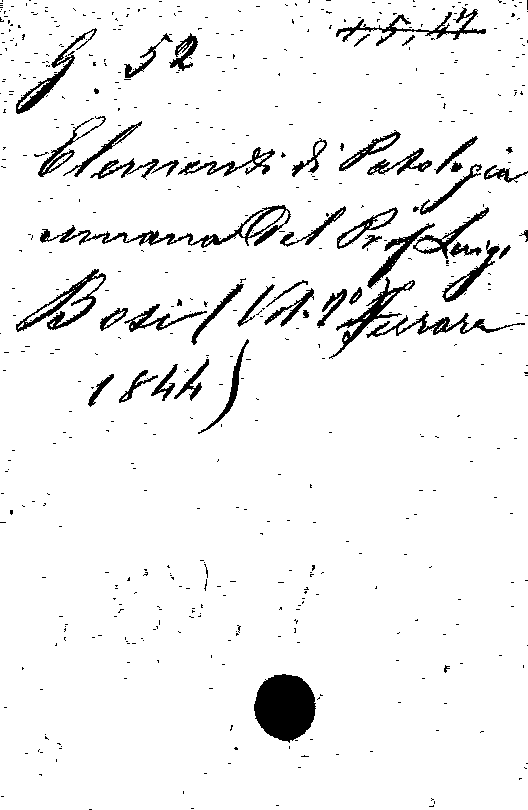 1, 5, 47
G. 52
Elementi di Patologia
umana Del Prof Luigi
Bosi (Vol. 2º Ferrara
1844)